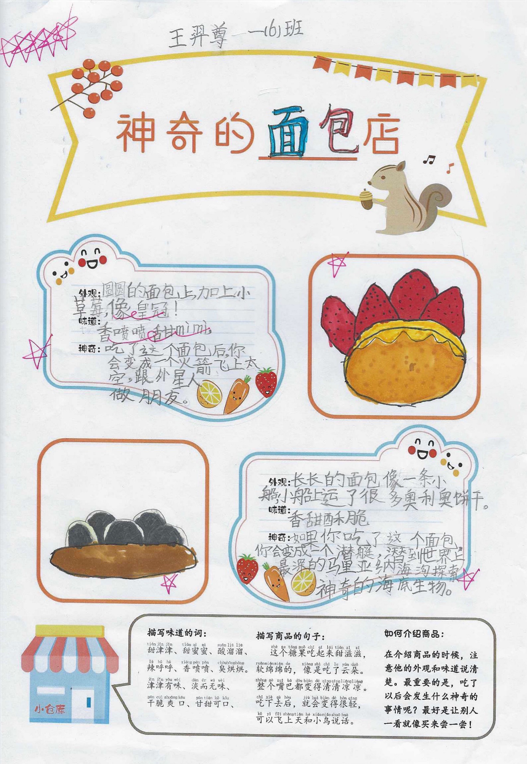 王羿尊 一(6)班
神奇的面包店
外观:圆圆的面包上加上小
草莓,像皇冠!
味道:
香喷喷,甜mìmì,
神奇:吃了这个面包后,你
会变成一个火箭飞上太
空,跟外星人
做朋友。
外观:长长的面包像一条小
船,小船上运了很多奥利奥饼干。
味道:
香甜酥脆
神奇:如果你吃了这个面包,
你会变成一个潜艇,潜到世界上
最深的马里亚纳海沟探索
神奇的海底生物。
描写味道的词:
甜津津、甜蜜蜜、酸溜溜、
辣呼呼、香喷喷、臭烘烘。
津津有味、淡而无味、
干脆爽口、甘甜可口、
描写商品的句子:
这个糖果吃起来甜滋滋,
软绵绵的,像是吃了云朵。
整个嘴巴都变得清清凉凉。
吃下去后,就会变得很轻,
可以飞上天和小鸟说话。
如何介绍商品:
在介绍商品的时候,注
意他的外观和味道说清
楚。最重要的是,吃了
以后会发生什么神奇的
事情呢?最好是让别人
一看就像买来尝一尝!